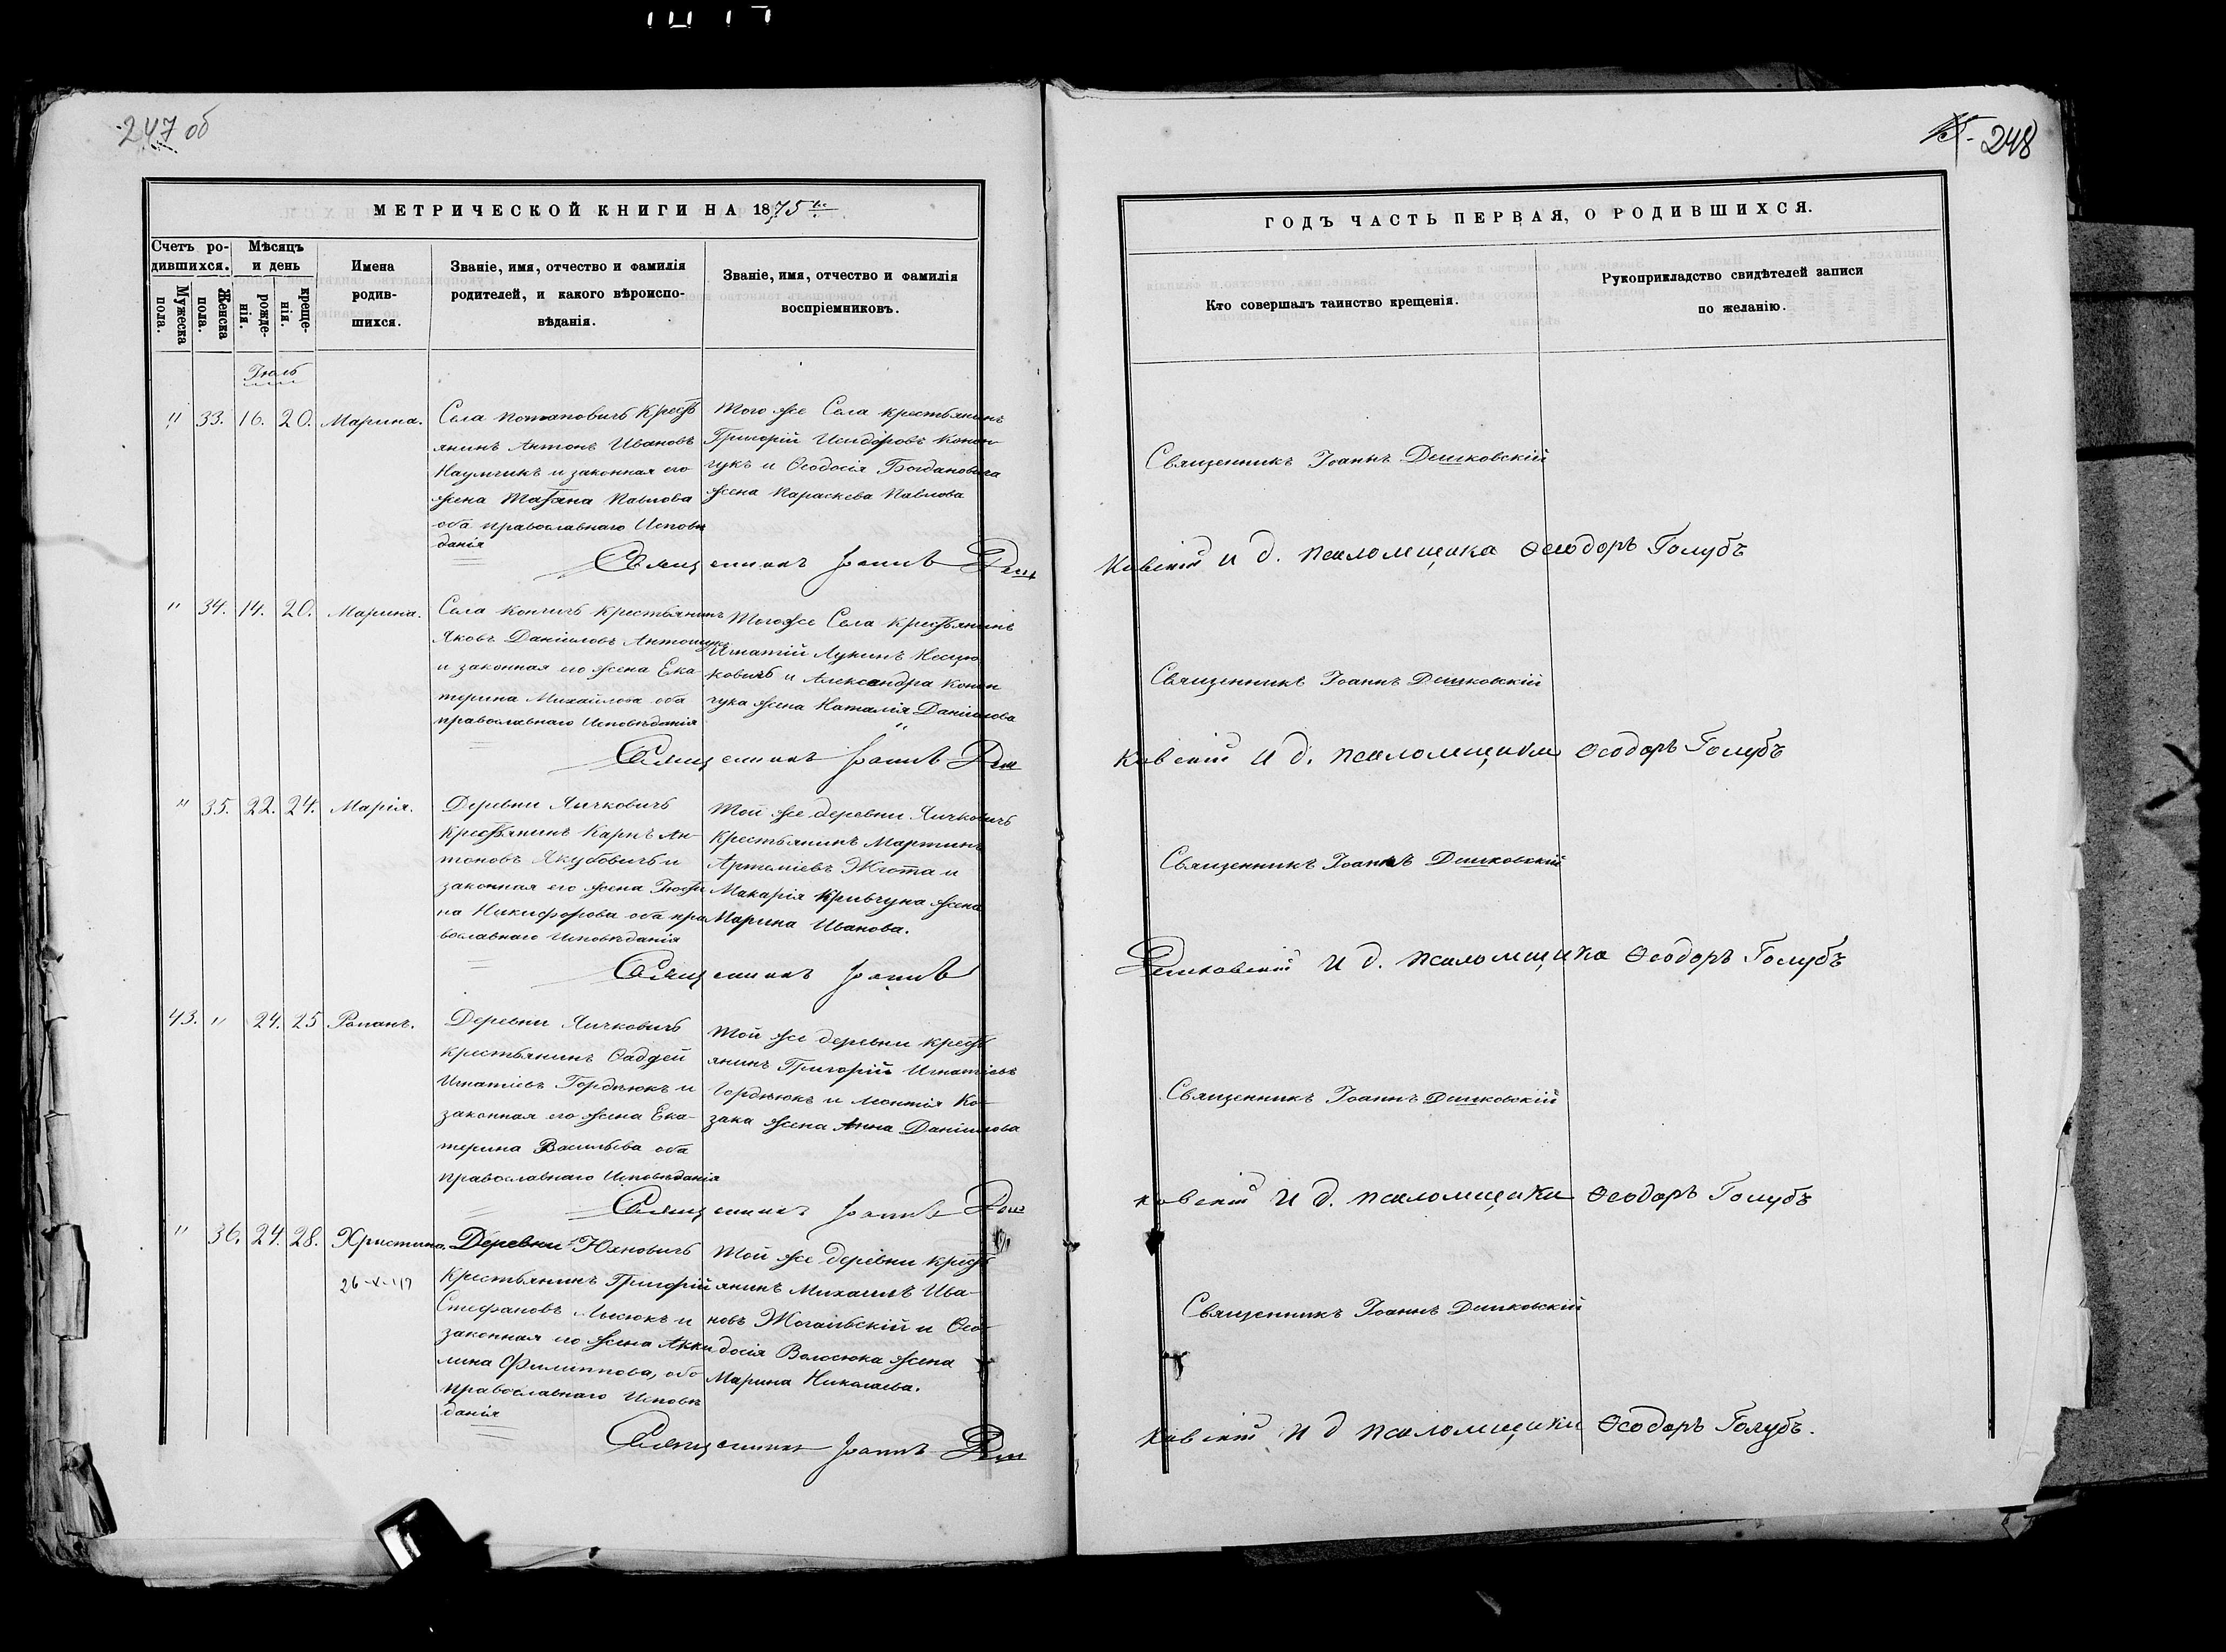 247 об
МЕТРИЧЕСКОЙ КНИГИ НА 1875
Счетъ родившихся.
Мѣсяцъ и день
Мужеска пола.
Женска пола.
рожденія.
крещенія.
Имена родившихся.
Званіе, имя, отчество и фамилія
родителей, и какого вѣроиспо-
вѣданія.
Званіе, имя, отчество и фамилія
воспріемниковъ.
Іюль
" 33. 16. 20. Марина.
Села Потаповичъ Крест
янинъ Антонъ Ивановъ
Наумчикъ и законная его
жена Татіана Павлова
оба православнаго Исповѣ
данія
Того же Села крестьянинъ
Григорій Исидоровъ Конон
чукъ и Ѳеодосія Богдановича
жена Параскева Павлова
Священникъ Іоаннъ Деш
" 34. 14. 20. Марина.
Села Кончичъ Крестьянинъ
Яковъ Даніиловъ Антончукъ
и законная его жена Ека
терина Михайлова оба
православнаго Исповѣданія
Тогоже Села Крестьянинъ
Игнатій Лукинъ
ковичъ и Александра Конон
чука жена Наталія Даніилова
Священникъ Іоаннъ Деш
" 35. 22. 24. Марія.
Деревни Яичковичъ
Крестьянинъ Карпъ Ан-
тоновъ Якубовичъ и
законная его жена Іусти
на Никифорова оба пра
вославнаго Исповѣданія
Той же деревни Яичковичъ
Крестьянинъ Мартинъ
Артеміевъ Жгота и
Макарія Кривчуна жена
Марина Иванова.
Священникъ Іоаннъ
43. " 24. 25 Романъ.
Деревни Яичковичъ
крестьянинъ Ѳаддей
Игнатіевъ Гордѣюкъ и
законная его жена Ека-
терина Васильева оба
православнаго Исповѣданія
Той же деревни Крест
янинъ Григорій Игнатіевъ
Гордѣюкъ и Леонтія Ко-
зака жена Анна Даніилова
Священникъ Іоаннъ Деш
" 36. 24. 28. Христина.
26-X-
Деревни Юхновичъ
Крестьянинъ Григорій
Стефановъ Лысюкъ и
законная его жена Аки
лина Филиппова, оба
православнаго Исповѣ
данія
Той же деревни Крест
янинъ Михаилъ Ива-
новъ Жогальскій и Ѳео-
досія Волосюка жена
Марина Николаева.
Священникъ Іоаннъ Деш
248
ГОДЪ ЧАСТЬ ПЕРВАЯ, О РОДИВШИХСЯ.
Кто совершалъ таинство крещенія.
Рукоприкладство свидѣтелей записи
по желанію.
Священникъ Іоаннъ Дешковскій
ковскій И д. псаломщика Ѳеодоръ Голубъ
Священникъ Іоаннъ Дешковскій
ковскій И д. псаломщика Ѳеодоръ Голубъ
Священникъ Іоаннъ Дешковскій
Дешковскій И д. псаломщика Ѳеодоръ Голубъ
Священникъ Іоаннъ Дешковскій
ковскій И д. псаломщика Ѳеодоръ Голубъ
Священникъ Іоаннъ Дешковскій
ковскій И д псаломщика Ѳеодоръ Голубъ.